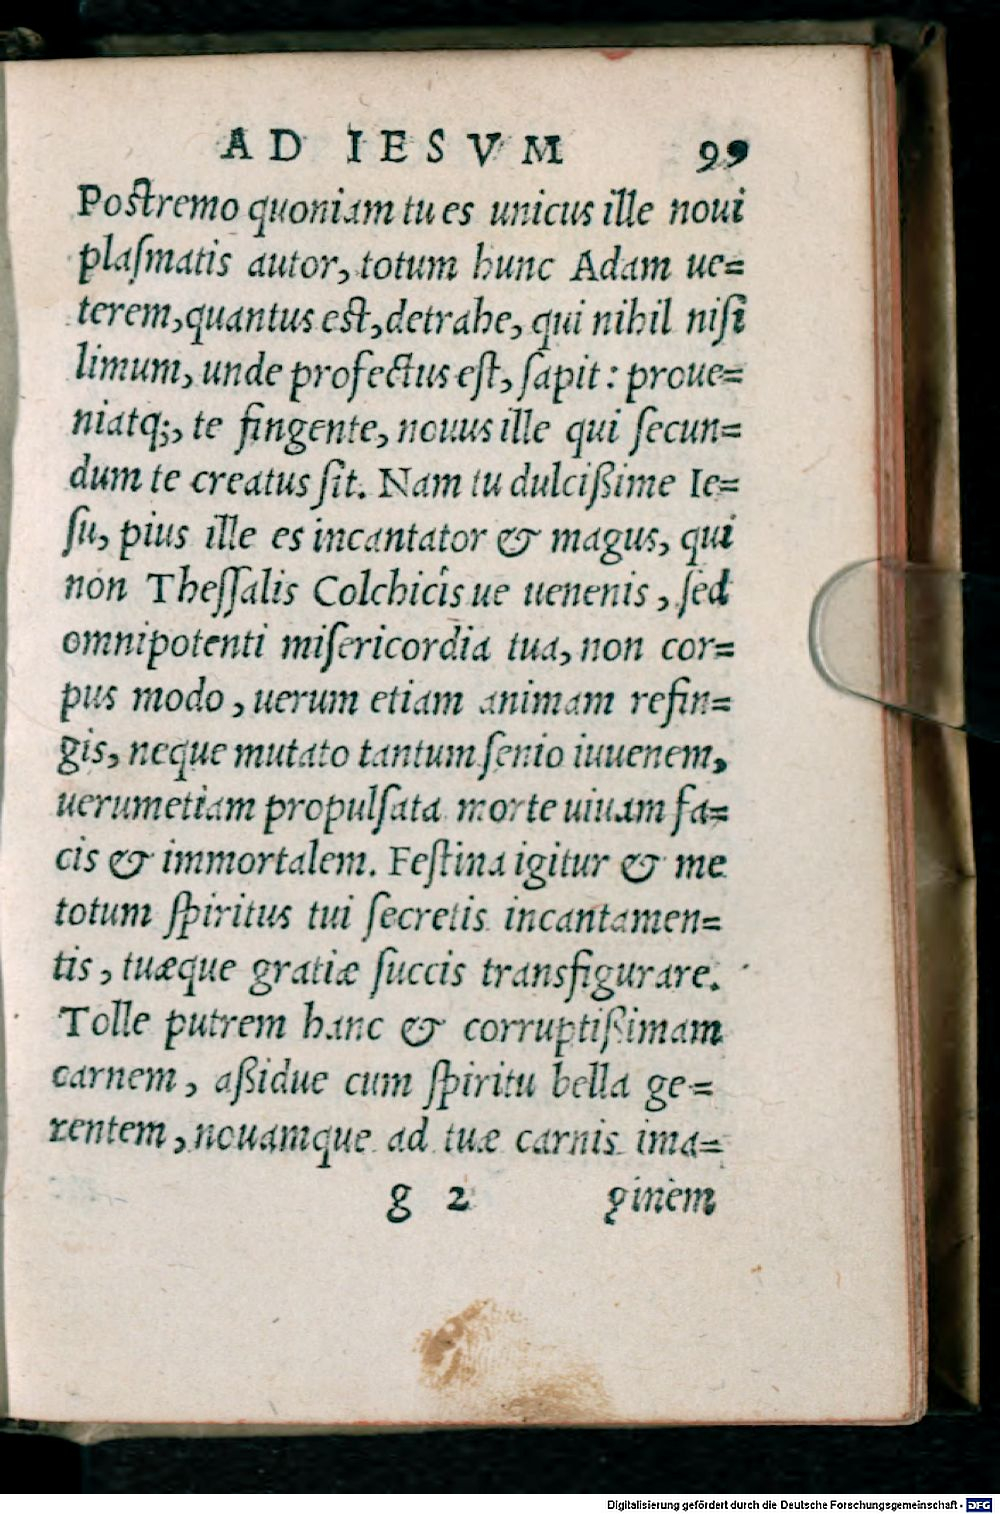 AD IESVM 99
Postremo quoniam tu es unicus ille noui
plaſmatis autor, totum hunc Adam ue=
terem, quantus eſt, detrahe, qui nihil niſi
limum, unde profectus eſt, ſapit: proue=
niatq;, te fingente, nouus ille qui ſecun=
dum te creatus ſit. Nam tu dulcißime Ie=
ſu, pius ille es incantator & magus, qui
non Theſſalis Colchicis ue uenenis, ſed
omnipotenti miſericordia tua, non cor=
pus modo, uerum etiam animam refin=
gis, neque mutato tantum ſenio iuuenem,
uerumetiam propulſata morte uiuam fa=
cis & immortalem. Feſtina igitur & me
totum ſpiritus tui ſecretis incantamen=
tis, tuæque gratiæ ſuccis transfigurare.
Tolle putrem hanc & corruptißimam
carnem, aßidue cum ſpiritu bella ge=
rentem, nouamque ad tuæ carnis ima=
g 2 ginem
Digitalisierung gefördert durch die Deutsche Forschungsgemeinschaft - DFG